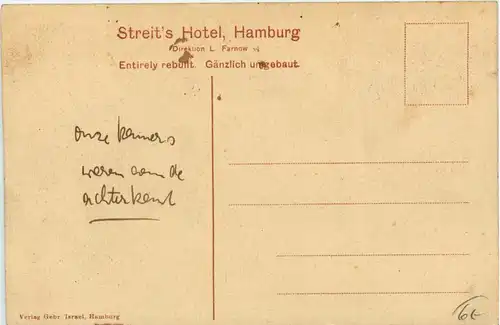 Streit's Hotel, Hamburg
Direktion L. Farnow
Entirely rebuilt. Gänzlich umgebaut.
onze kamers
waren aan de
achterkant
Verlag Gebr. Israel, Hamburg
6€